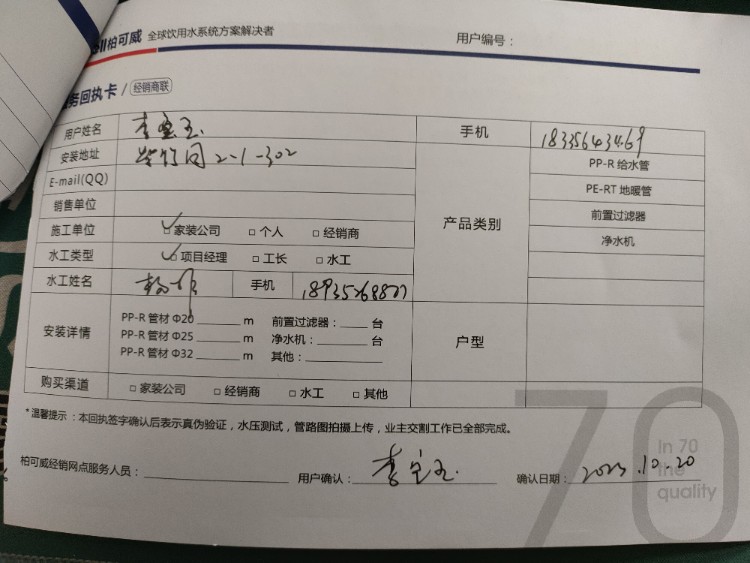 柏可威 全球饮用水系统方案解决者
用户编号：
务回执卡 / 经销商联
用户姓名 李宝玉 手机 18335643469
安装地址 2-1-302 产品类别 PP-R 给水管
E-mail(QQ) PE-RT 地暖管
销售单位 前置过滤器
施工单位 ☑家装公司 □个人 □经销商 净水机
水工类型 ☑项目经理 □工长 □水工
水工姓名 手机
安装详情 PP-R 管材 Φ20 ______ m 前置过滤器：____ 台 户型
PP-R 管材 Φ25 ______ m 净水机：____ 台
PP-R 管材 Φ32 ______ m 其他：______
购买渠道 □家装公司 □经销商 □水工 □其他
*温馨提示：本回执签字确认后表示真伪验证，水压测试，管路图拍摄上传，业主交割工作已全部完成。
柏可威经销网点服务人员：______ 用户确认：李宝玉 确认日期：2023.10.20
70
In 70
the
quality